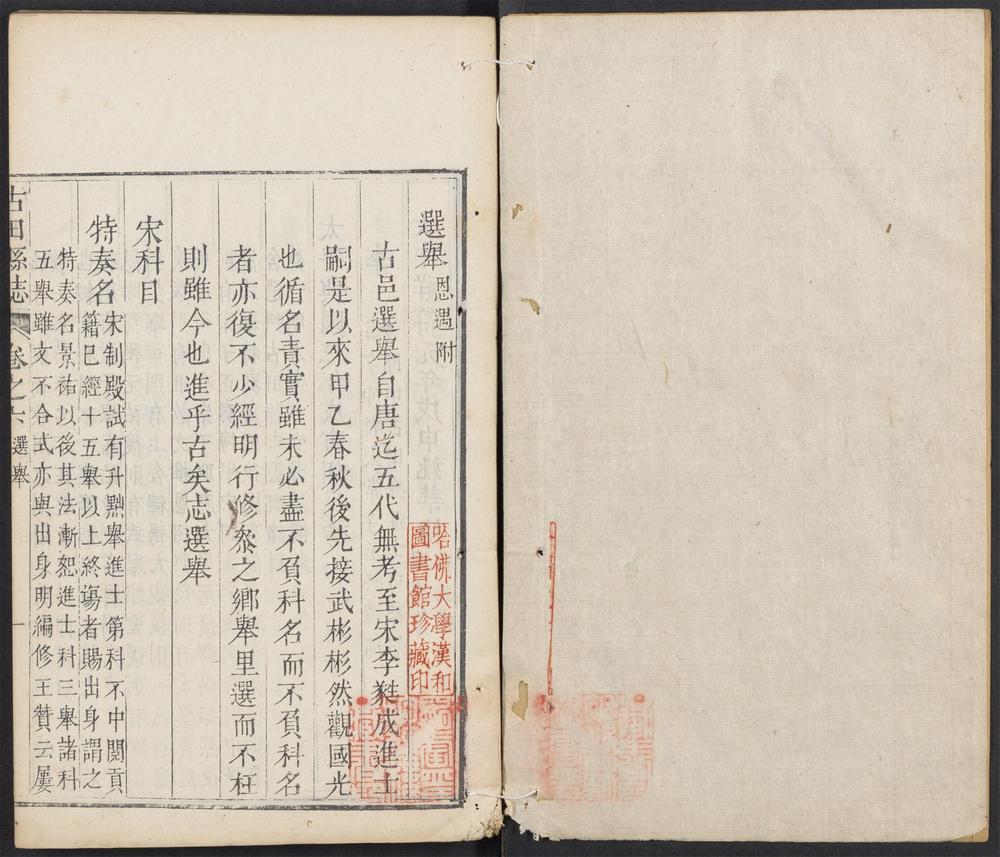 選舉恩遇附
古邑選舉自唐迄五代無考至宋李蕤成進士
嗣是以來甲乙春秋後先接武彬彬然觀國光
也循名責實雖未必盡不負科名而不負科名
者亦復不少經明行修叅之鄉舉里選而不枉
則雖今也進乎古矣志選舉
宋科目
特奏名宋制殿試有升黜舉進士第科不中閱貢
籍已經十五舉以上終塲者賜出身謂之
特奏名景祐以後其法漸恕進士科三舉諸科
五舉雖文不合式亦與出身明編修王贊云屢
古田縣誌 卷之六 選舉 一
哈佛大學漢和
圖書館珍藏印